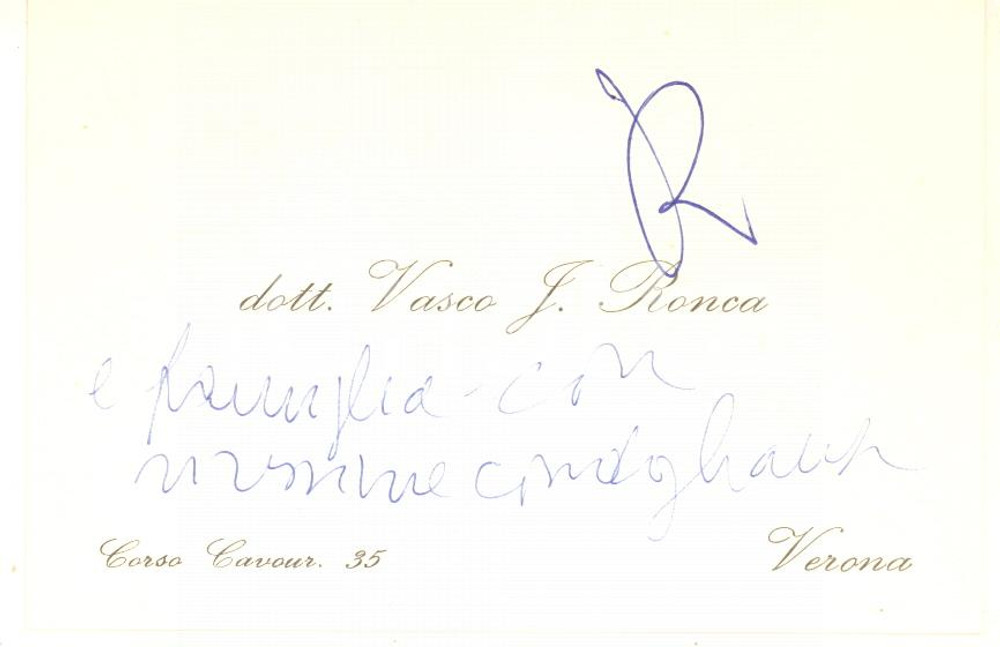 R
dott. Vasco J. Ronca
e famiglia - con
vivissime condoglianze
Corso Cavour. 35
Verona